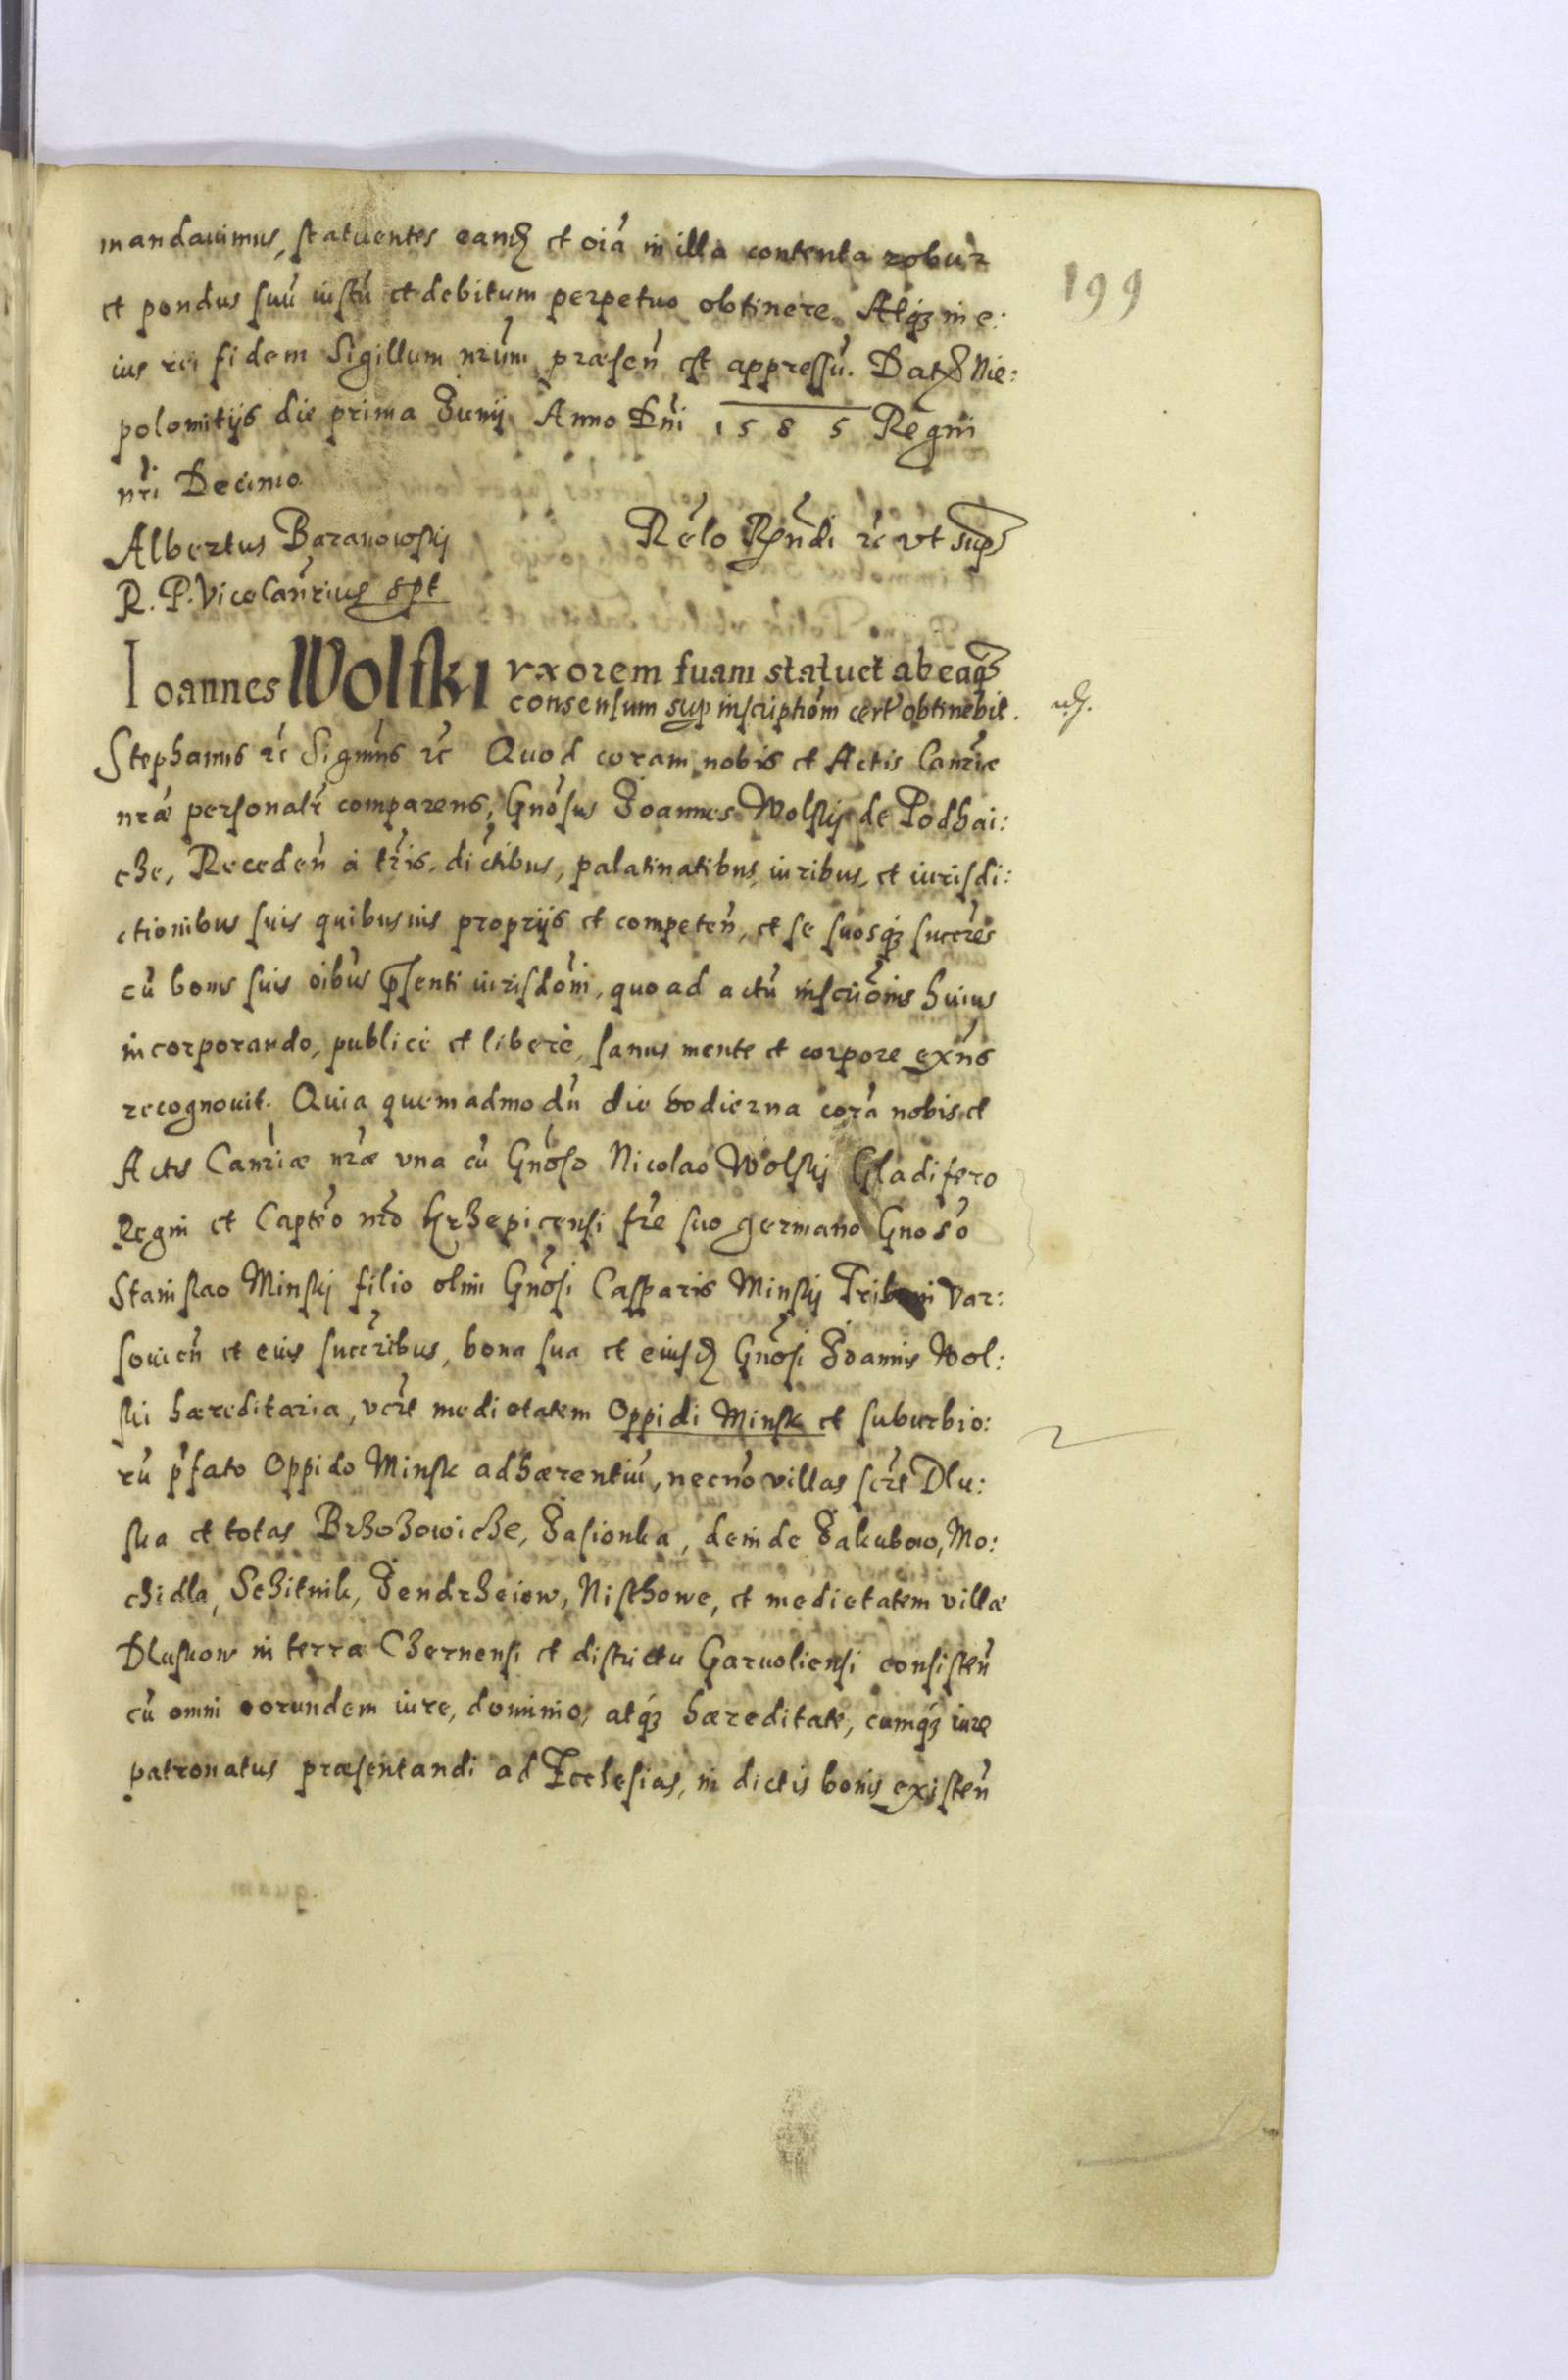 199
mandauimus, statuentes eandẽ et oiã in illa contenta robur
et pondus suũ iustũ et debitum perpetuo obtinere. Atqꝫ in e:
ius rei fidem Sigillum nrũm præsen̄ est appressũ. Dat Nie:
polomitijs die prima Junij Anno Dñi 1585 Regni
nrĩ Decimo
Albertus Baranowskij Relo Rndi rc vt sup
R. P. Vicecanrius spt
Ioannes Wolski vxorem suam statuet ab eaqꝫ
consensum sup inscriptiom cert obtinebit.
Stephanus rc Signũs rc Quod coram nobis et Actis Canrie
nræ personalr comparens, Gnosus Joannes Wolskij de Podhai:
cze, Receden̄ á trĩs, dictibus, palatinatibus, iuribus, et iurisdi:
ctionibus suis quibusuis proprijs et competen̄, et se suosqꝫ succrẽs
cũ bonis suis oĩbus pñsenti iurisdoñi, quo ad actũ inscrĩonis huius
incorporando, publicè et liberè, sanus mente et corpore exñs
recognouit. Quia quemadmodũ die hodierna corã nobis et
Actis Canriæ nræ vna cũ Gnoso Nicolao Wolskij Gladifero
Regni et Capteo nrõ Krzepicensi fre suo germano Gnoso
Stanislao Minskij filio olim Gnosi Casparis Minskij Tribuni Var:
souien̄ et eius succribus, bona sua et eiusdẽ Gnosi Joannis Wol:
ski hæreditaria, vcrt medietatem Oppidi Minsk et suburbio:
rũ pfato Oppido Minsk adhærentiũ, necno villas scrt Dlu:
ska et totas Brzozowicze, Jasionka, deinde Jakubow, Mo:
czidla, Sczitnik, Jendrzeiow, Nisthowe, et medietatem villæ
Dluskow in terra Czernensi et districtu Garuoliensi consisten̄
cũ omni eorundem iure, dominio, atqꝫ hæreditate, cumqꝫ iure
patronatus præsentandi ad Ecclesias, in dictis bonis existen̄